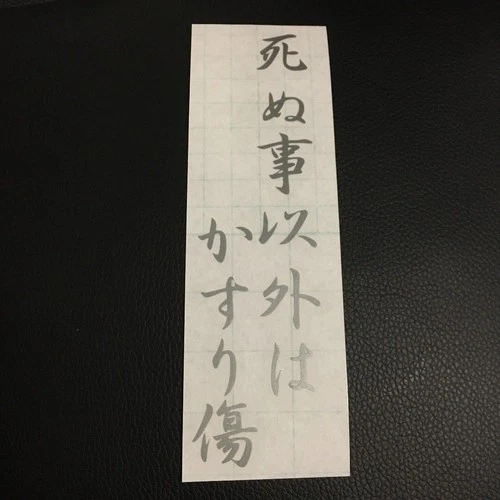 死ぬ事以外は
かすり傷